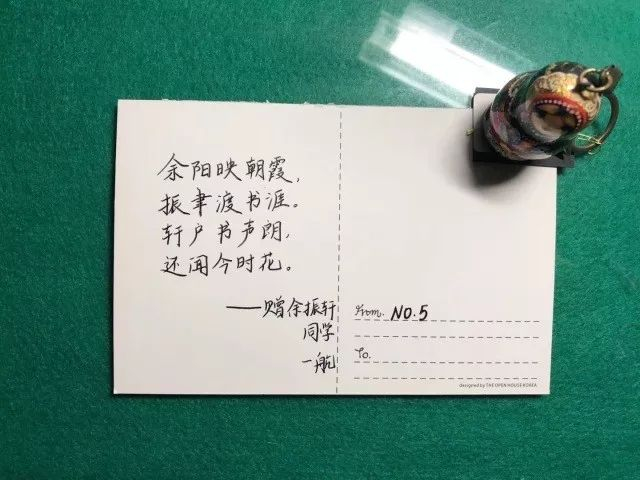 余阳映朝霞,
振聿渡书涯。
轩户书声朗,
还闻今时花。
——赠余振轩
同学
一航
From. NO.5
To.
designed by THE OPEN HOUSE KOREA